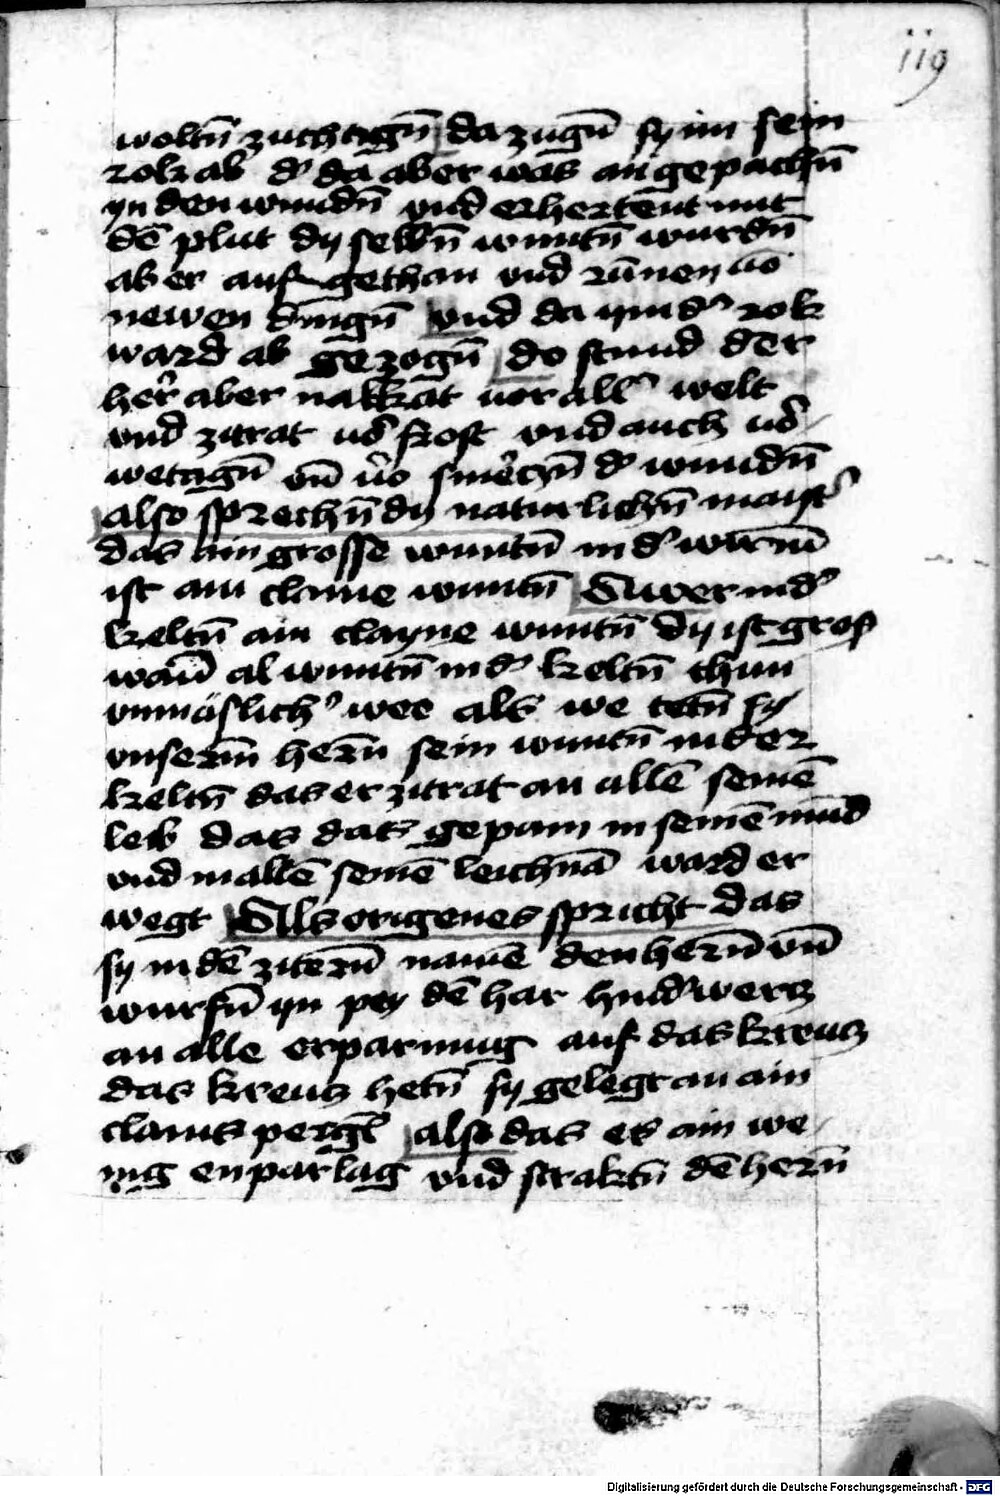 119
woltn̄ zuchtign̄ da zugn̄ sy im sein
rok ab d' da aber was an gepachn̄
yn den wundn̄ vnd erhertent mit
dē plut dy selbn̄ wuntn̄ wurdn̄
aber auf gethan vnd runnen vō
newen dingn̄ vnd da ym d' rok
ward ab gezogn̄ do stund der
her' aber nakkat vor all' welt
vnd zitrat vō frost vnd auch vō
wetagn̄ vn̄ vō smerczn̄ d' wundn̄
also sprechn̄ dy naturlichn̄ maist'
das ain grosse wuntn̄ in d' wirm̄
ist ain claine wuntn̄ Swer in d'
keltn̄ ain clayne wuntn̄ dy ist gros
wan̄ al wuntn̄ in d' keltn̄ thun
vnmäslich' wee als we tetn̄ sy
vnserm̄ hern̄ sein wuntn̄ in der
keltn̄ das er zitrat an allē seinē
leib das das gepain in seinē mund
vnd in allē seinē leichnā ward er
wegt Als origenes spricht das
sy in dē zitern̄ namē den hern̄ vn̄
wurfn̄ yn pey dē har hind'wertz
an alle erparmung auf das kreutz
das kreutz hetn̄ sy gelegt an ain
clains pergl̄ also das es ain we
nig enpar lag vnd straktn̄ dē hern̄
Digitalisierung gefördert durch die Deutsche Forschungsgemeinschaft - DFG